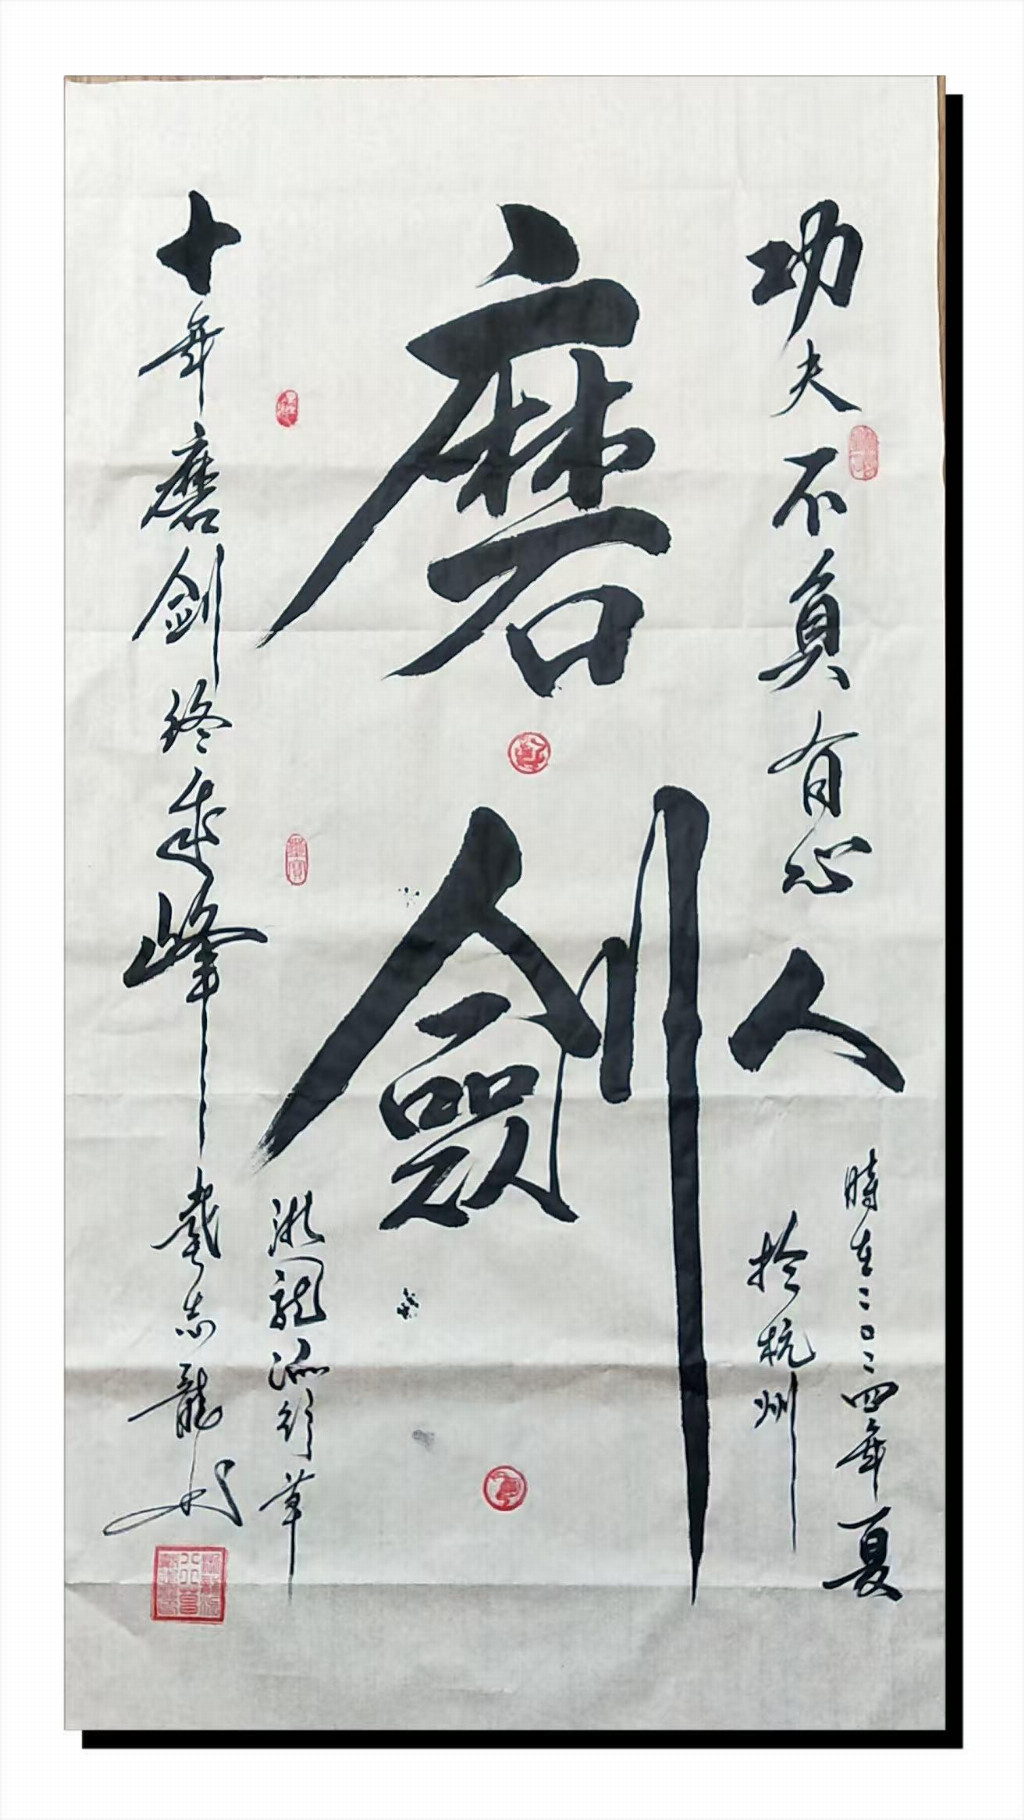 功夫不負有心人
時在二〇二四年夏
於杭州
磨劍
十年磨剑终成峰
浙龍派行草
戴志龍书